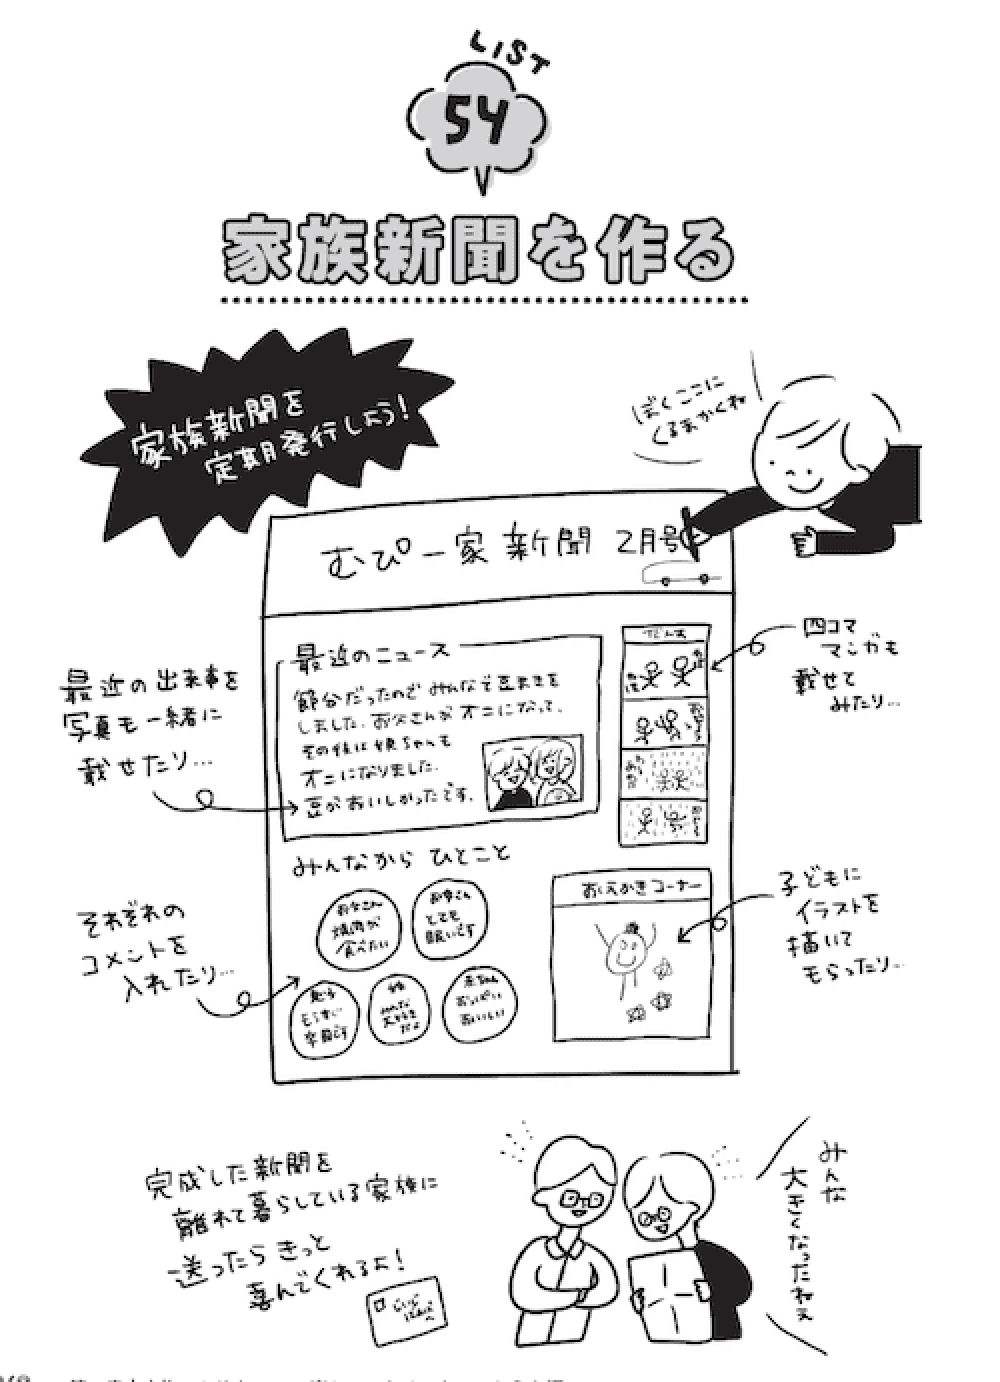 LIST
54
家族新聞を作る
家族新聞を
定期発行しよう!
ぼくここに
くるまかくね
むぴー家 新聞 2月号
最近のニュース
節分だったので みんなで豆まきを
しました。お父さんが オニになって、
その後は 娘ちゃんも
オニになりました。
豆がおいしかったです。
最近の出来事を
写真も一緒に
載せたり…
四コマ
マンガも
載せて
みたり…
みんなから ひとこと
お父さん
焼肉が
食べたい
お母さん
とても
眠いです
もうすぐ
卒園です
みんな
大好き
だよ
赤ちゃん
おっぱい
おいしい
それぞれの
コメントを
入れたり…
おえかきコーナー
子どもに
イラストを
描いて
もらったり…
完成した新聞を
離れて暮らしている家族に
送ったら きっと
喜んでくれるよ!
みんな
大きくなったねぇ